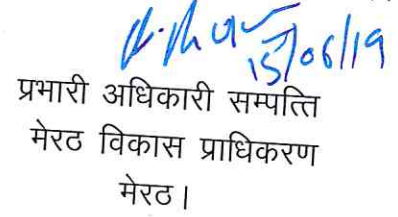 15/06/19
प्रभारी अधिकारी सम्पत्ति
मेरठ विकास प्राधिकरण
मेरठ।